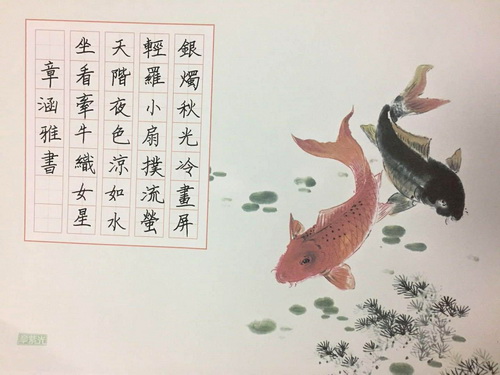 銀燭秋光冷畫屏
輕羅小扇撲流螢
天階夜色涼如水
坐看牽牛織女星
章涵雅書